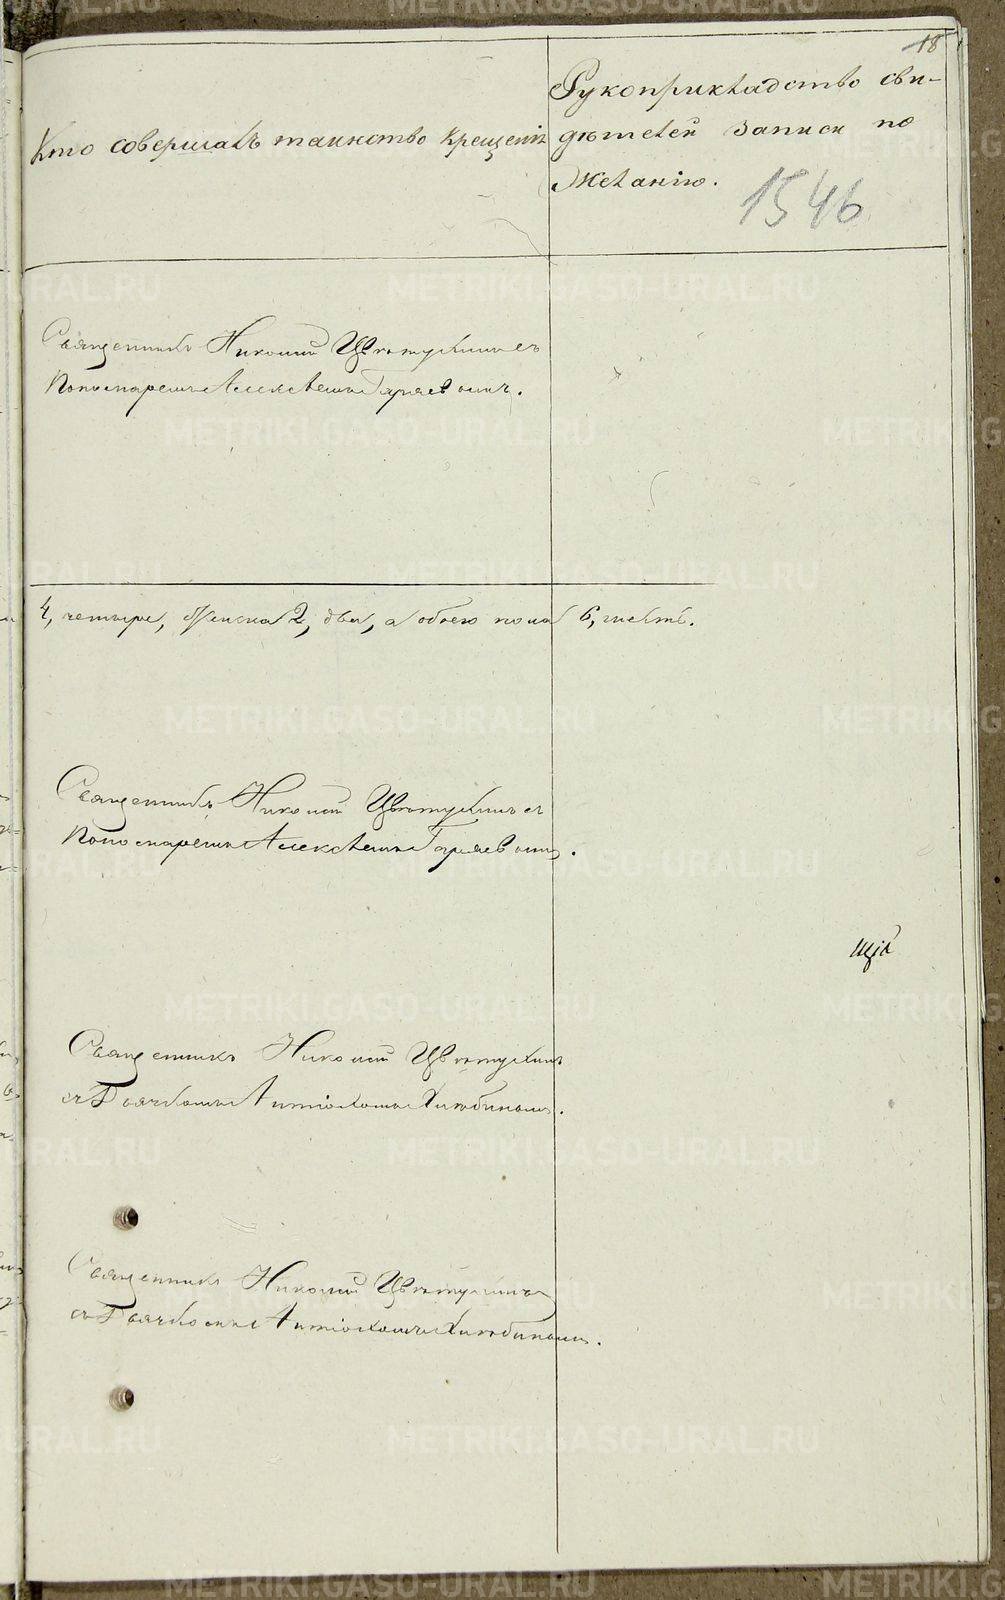 18
Рукоприкладство сви-
Кто совершалъ таинство крещенія
дѣтелей записи по
желанію.
1546
Священникъ Николай Цвѣтухинъ съ
Пономаремъ Алексѣемъ Гаряевымъ.
4, четыре, Женска 2, два, а обоего пола 6, шесть.
Священникъ Николай Цвѣтухинъ съ
Пономаремъ Алексѣемъ Гаряевымъ.
щій
Священникъ Николай Цвѣтухинъ
съ Дьячкомъ Антіохомъ Хлюбинымъ.
Священникъ Николай Цвѣтухинъ
съ Дьячкомъ Антіохомъ Хлюбинымъ.
METRIKI.GASO-URAL.RU